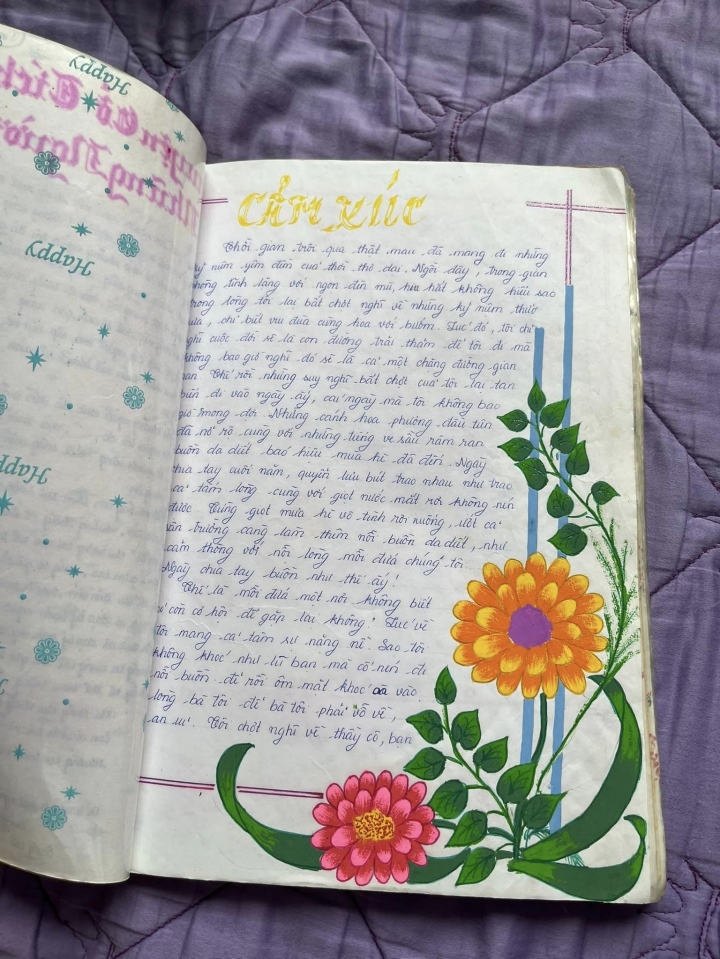 Happy
Happy
Happy
Happy
Cổ Tích
Những Người
CẢM XÚC
Thời gian trôi qua thật mau đã mang đi những
kỷ niệm yên đềm của thời thơ dại. Ngồi đây, trong gian
phòng tĩnh lặng với ngọn đèn mù, hiu hắt không hiểu sao
trong lòng tôi lại bất chợt nghĩ về những kỷ niệm thuở
xưa, chỉ biết vui đùa cùng hoa với bướm. Lúc đó, tôi chỉ
nghĩ cuộc đời sẽ là con đường trải thảm để tôi đi mà
không bao giờ nghĩ đó sẽ là cả một chặng đường gian
nan. Thế rồi những suy nghĩ bất chợt của tôi lại tan
biến đi vào ngày ấy, cái ngày mà tôi không bao
giờ mong đợi. Những cánh hoa phượng đầu tiên
đã nở rộ cùng với những tiếng ve sầu râm ran
buồn da diết báo hiệu mùa hè đã đến. Ngày
chia tay cuối năm, quyển lưu bút trao nhau như trao
cả tấm lòng cùng với giọt nước mắt rơi không nín
được. Từng giọt mưa hè vô tình rơi xuống, ướt cả
sân trường càng làm thêm nỗi buồn da diết, như
cảm thông với nỗi lòng mỗi đứa chúng tôi.
Ngày chia tay buồn như thế ấy!
Thế là mỗi đứa một nơi không biết
có còn cơ hội để gặp lại không? Lúc về
tôi mang cả tâm sự nặng nề. Sao tôi
không khóc như lũ bạn mà cố nén đi
nỗi buồn để rồi ôm mặt khóc oà vào
lòng bà tôi để bà tôi phải vỗ về,
an ủi. Tôi chợt nghĩ về thầy cô, bạn